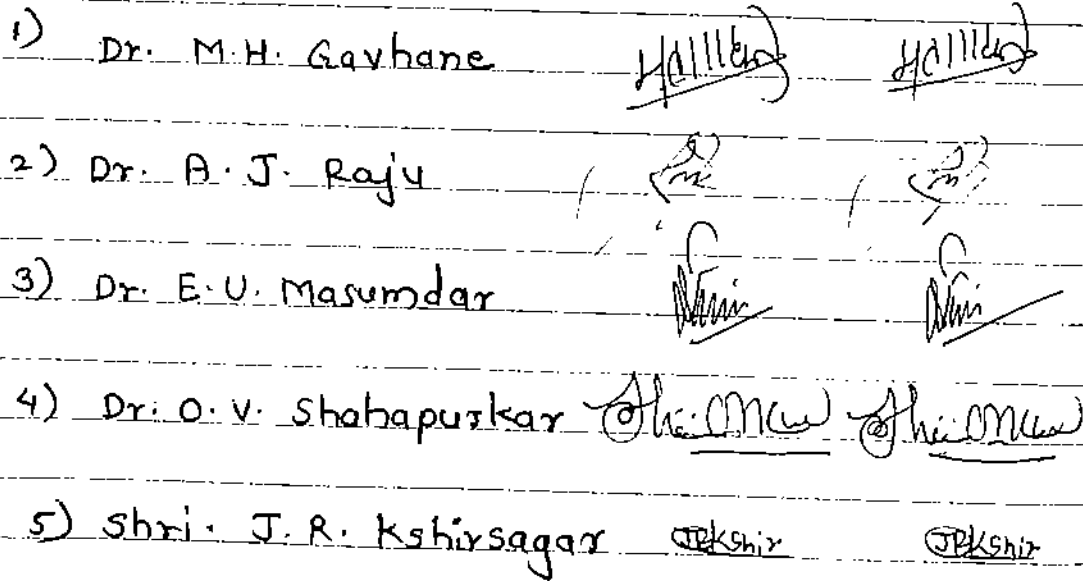 1) Dr. M.H. Gavhane
2) Dr. A.J. Raju
3) Dr. E.U. Masumdar
4) Dr. O.V. Shahapurkar
5) Shri. J.R. Kshirsagar JRKshir JRKshir